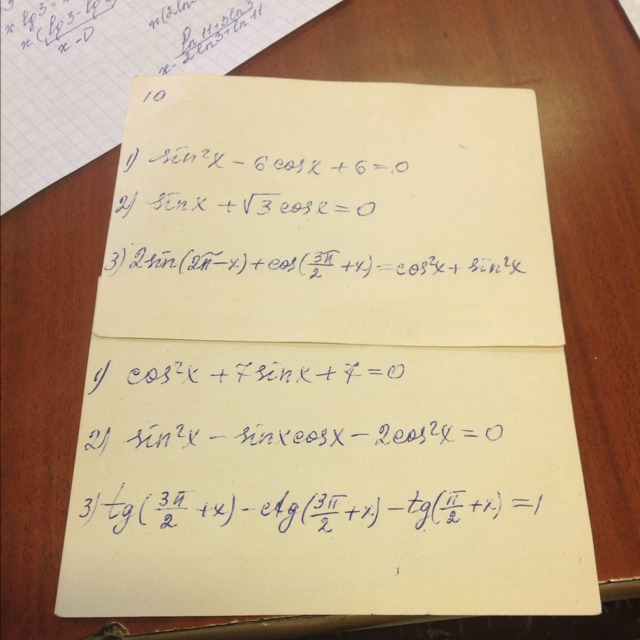 x lg3 =
x-0
10
1) sin²x - 6cosx + 6 = 0
2) sinx + √3 cosx = 0
3) 2sin(2π-x) + cos(3π/2 + x) = cos²x + sin²x
1) cos²x + 7sinx + 7 = 0
2) sin²x - sinxcosx - 2cos²x = 0
3) tg(3π/2 + x) - ctg(3π/2 + x) - tg(π/2 + x) = 1